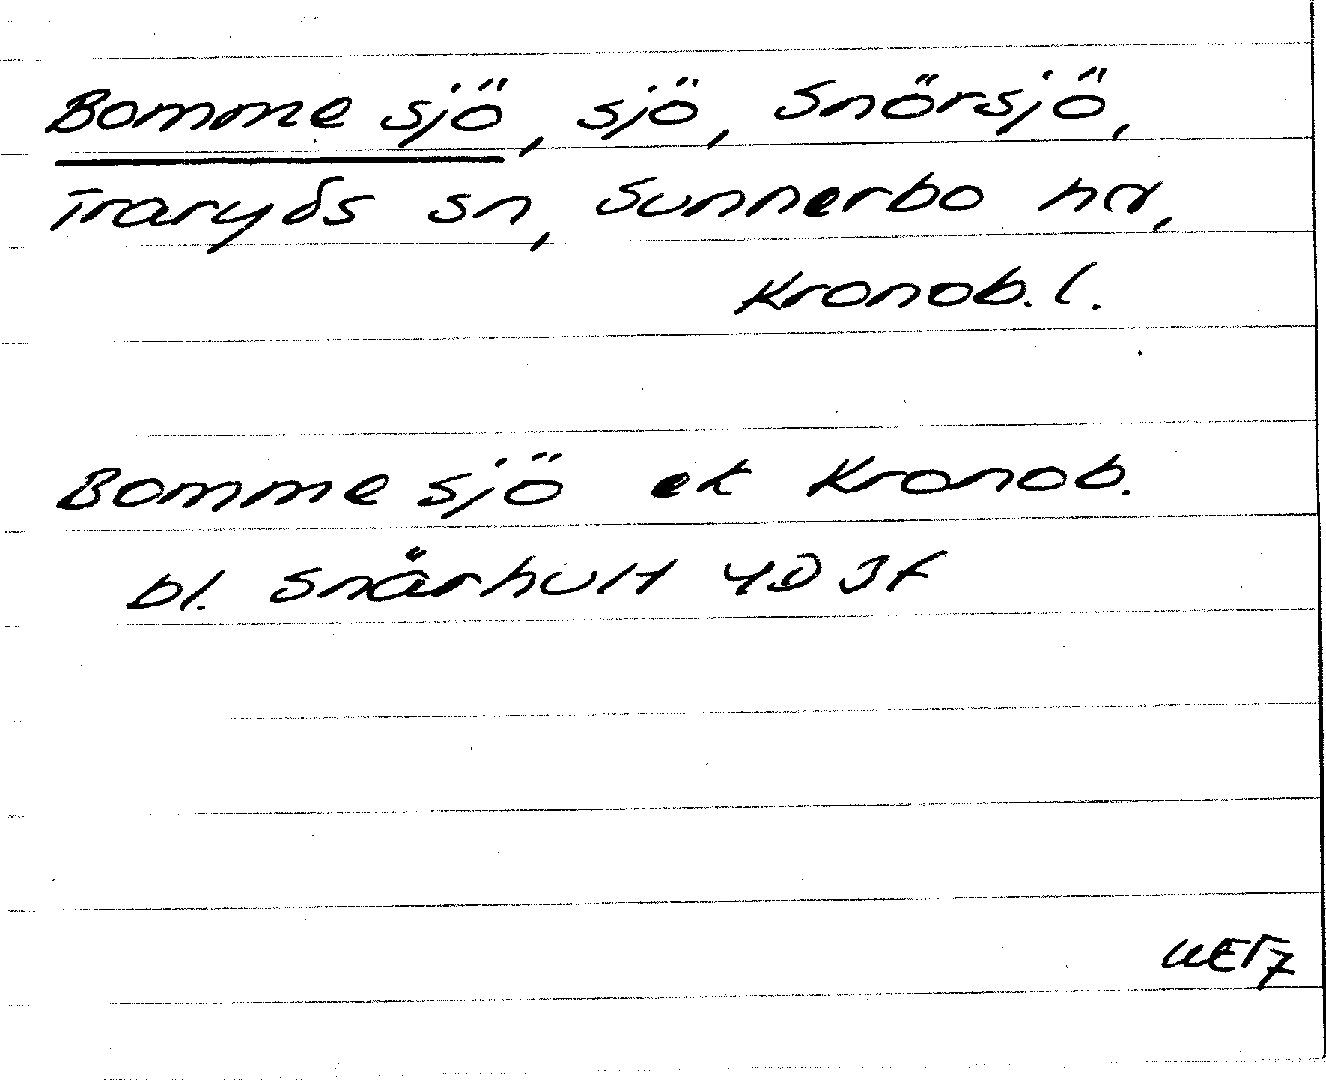 Bomme sjö, sjö, Snörsjö,
Traryds sn, Sunnerbo hd,
Kronob. l.
Bomme sjö ek Kronob.
bl. Snårhult 4D 3f